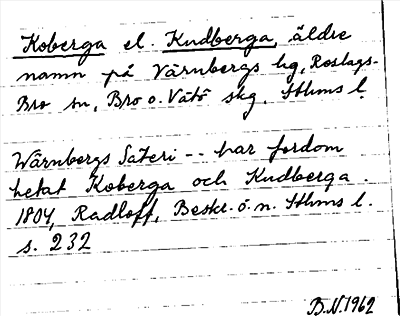 Koberga el. Kudberga, äldre
namn på Värnbergs hg, Roslags-
Bro sn, Bro o. Vätö skg. Sthms l.
Wärnbergs Säteri -- har fordom
hetat Koberga och Kudberga.
1804, Radloff, Beskr. ö. n. Sthms l.
s. 232
B.N. 1962